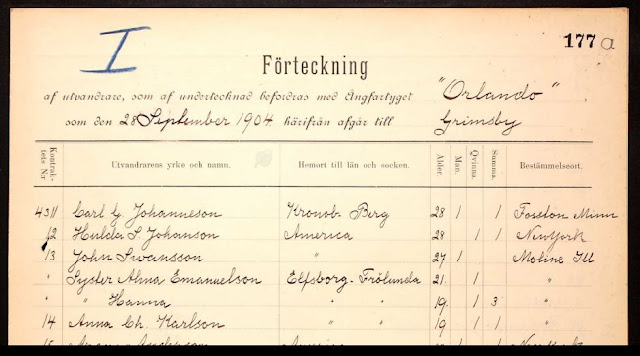 177 a
I
Förteckning
af utvandrare, som af undertecknad befordras med Ångfartyget "Orlando"
som den 28 September 1904 härifrån afgår till Grimsby
Kontrak-tets Nr Utvandrarens yrke och namn. Hemort till län och socken. Ålder. Man. Qvinna. Summa. Bestämmelseort.
4311 Carl G. Johanneson Kronob. Berg 28 1 1 Fosston Minn
12 Hulda S. Johanson America 28 1 1 New York
13 John Swansson " 27 1 Moline Ill
" Syster Alma Emanuelson Elfsborg. Frölunda 21 1 "
" " Hanna " " 19 1 3 "
14 Anna Ch. Karlson " " 19 1 1 "
15 Anderson America New York